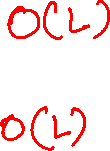 O(L)
O(L)